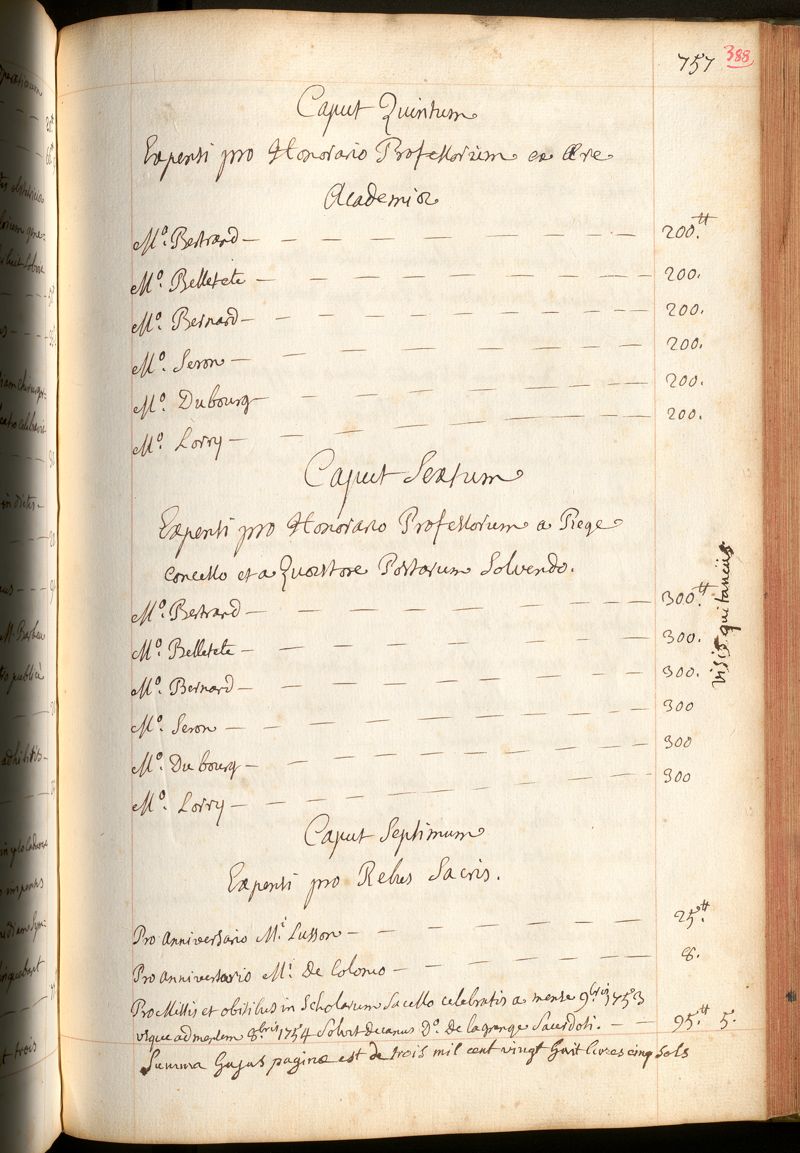 757 388
Caput Quintum
Expensi pro Honorario Professorum ex Ære
Academiæ
Mo. Bertrand — — — — — — — — 200.tt
Mo. Belletete — — — — — — — — 200.
Mo. Bernard — — — — — — — — 200.
Mo. Seron — — — — — — — — 200.
Mo. Dubourg — — — — — — — — 200.
Mo. Lorry — — — — — — — — 200.
Caput Sextum
Expensi pro Honorario Professorum a Rege
concesso et a Quæstore Postarum Solvendo.
Mo. Bertrand — — — — — — — — 300.tt
Mo. Belletete — — — — — — — — 300.
Mo. Bernard — — — — — — — — 300.
Mo. Seron — — — — — — — — 300
Mo. Du bourg — — — — — — — — 300
Mo. Lorry — — — — — — — — 300
visis quitanciis
Caput Septimum
Expensi pro Rebus Sacris.
Pro Anniversario Mi. Lusson — — — — — — 25.tt
Pro anniversario Mi. de Colonio — — — — — — 8.
Pro Missis et obitibus in Scholarum Sacello celebratis a mense 9bris 1753
usque ad mensem 8bris 1754 Solvit decanus Do. de la grange Sacerdoti. — — 95.tt 5.
Summa hujus paginæ est de trois mil cent vingt huit livres cinq sols